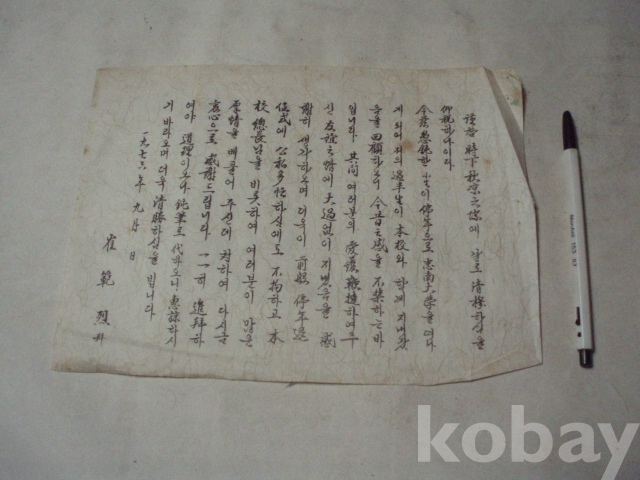 謹啓 時下秋凉之際에 날로 淸穆하심을
仰祝하나이다
今般 愚鈍한 小生이 停年으로 忠南大學을 떠나
게 되어 저의 過半生이 本校와 함께 지내왔
음을 回顧하오니 今昔之感을 不禁하는바
입니다 其間 여러분의 愛護 鞭撻하여주
신 友誼之情에 大過없이 지냈음을 感
謝히 생각하오며 더욱이 前般 停年退
任式에 公私多忙하심에도 不拘하고 本
校 總長님을 비롯하여 여러분이 많은
厚情을 베풀어 주신데 對하여 다시금
衷心으로 感謝드립니다 一一히 進拜하
여야 道理이오나 鈍筆로 代하오니 惠諒하시
기 바라오며 더욱 淸勝하심을 빕니다
一九七六年 九月 日
崔範烈 拜
kobay